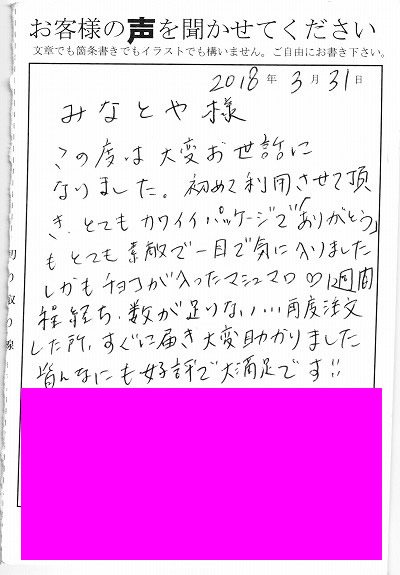 お客様の声を聞かせてください
文章でも箇条書きでもイラストでも構いません。ご自由にお書き下さい。
2018年 3月 31日
みなとや 様
この度は大変お世話に
なりました。初めて利用させて頂
き、とてもカワイイパッケージで「ありがとう」
もとても素敵で一目で気に入りました
しかもチョコが入ったマシュマロ♡1週間
程経ち、数が足りない…再度注文
した所、すぐに届き大変助かりました
皆んなにも好評で大満足です!!
切り取り線